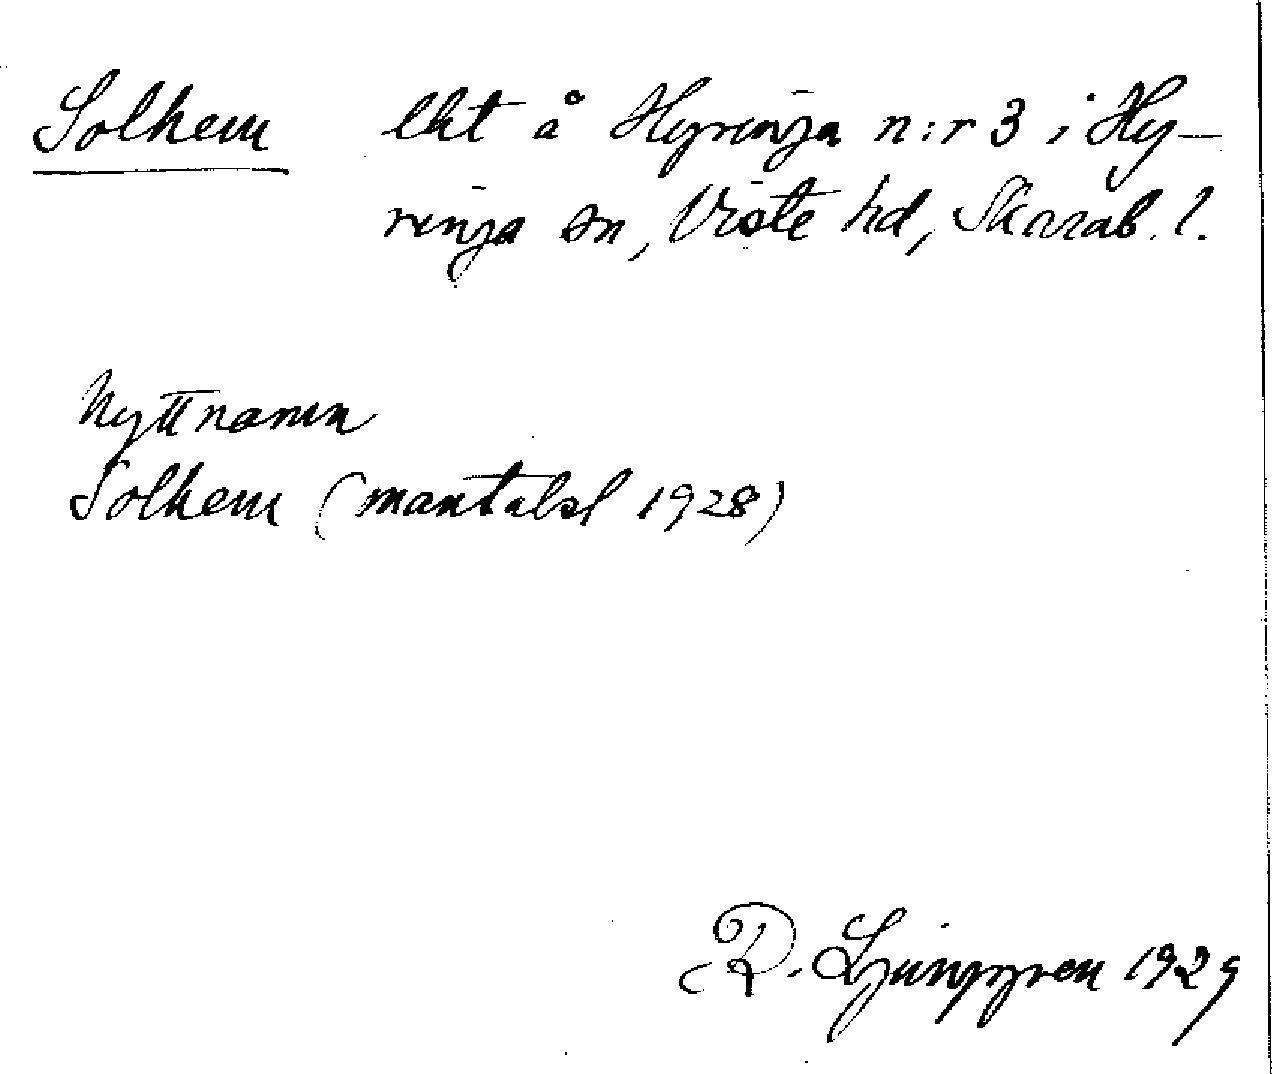 Solhem lht å Hyringa n:r 3 i Hy-
ringa sn, Viste hd, Skarab. l.
Nyttnamn
Solhem (mantalsl 1928)
R. Ljunggren 1929